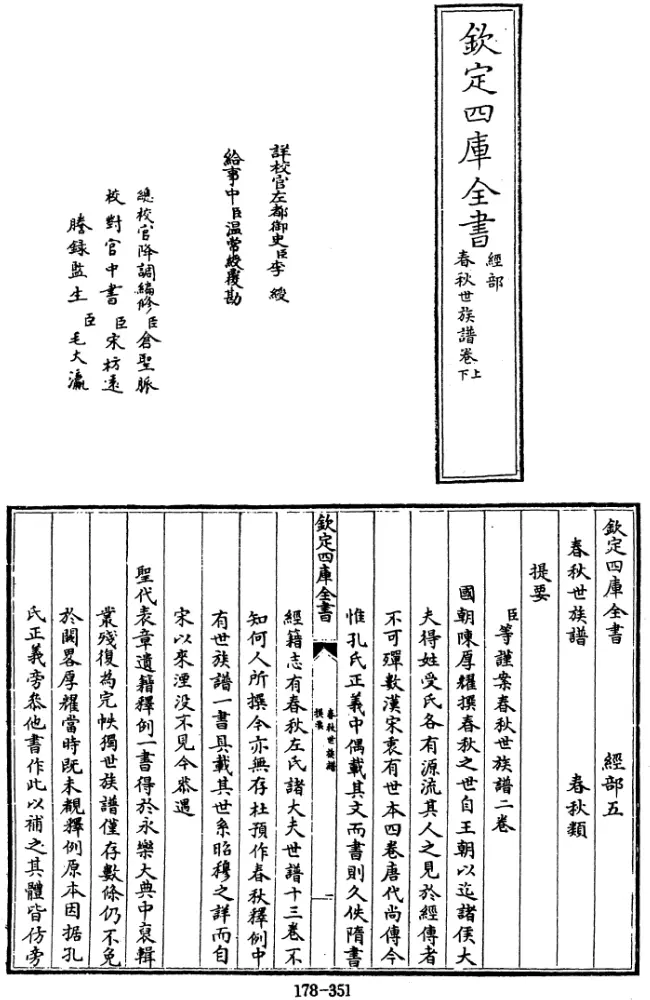 欽定四庫全書
經部
春秋世族譜卷上下
詳校官左都御史臣李綬
給事中臣温常綬覆勘
總校官降調編修臣倉聖脈
校對官中書臣宋枋遠
謄錄監生臣毛大瀛
欽定四庫全書 經部五
春秋世族譜 春秋類
提要
臣等謹案春秋世族譜二卷
國朝陳厚耀撰春秋之世自王朝以迄諸侯大
夫得姓受氏各有源流其人之見於經傳者
不可殫數漢宋衷有世本四卷唐代尚傳今
惟孔氏正義中偶載其文而書則久佚隋書
欽定四庫全書
春秋世族譜
提要
一
經籍志有春秋左氏諸大夫世譜十三卷不
知何人所撰今亦無存杜預作春秋釋例中
有世族譜一書具載其世系昭穆之詳而自
宋以來湮没不見今恭遇
聖代表章遺籍釋例一書得於永樂大典中裒輯
叢殘復為完帙獨世族譜僅存數條仍不免
於闕畧厚耀當時既未覩釋例原本因据孔
氏正義旁叅他書作此以補之其體皆仿旁
178-351